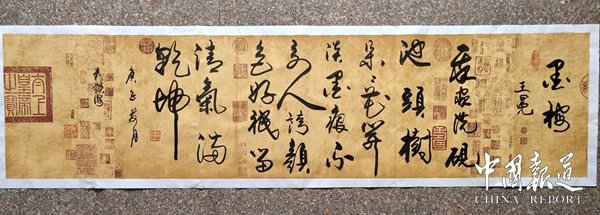 墨梅
王冕
我家洗硯
池頭樹
朵々花開
淡墨痕不
要人誇顏
色好祇留
清氣滿
乾坤
庚子菊月
太上
皇帝
之寶
中國報道
CHINA REPORT